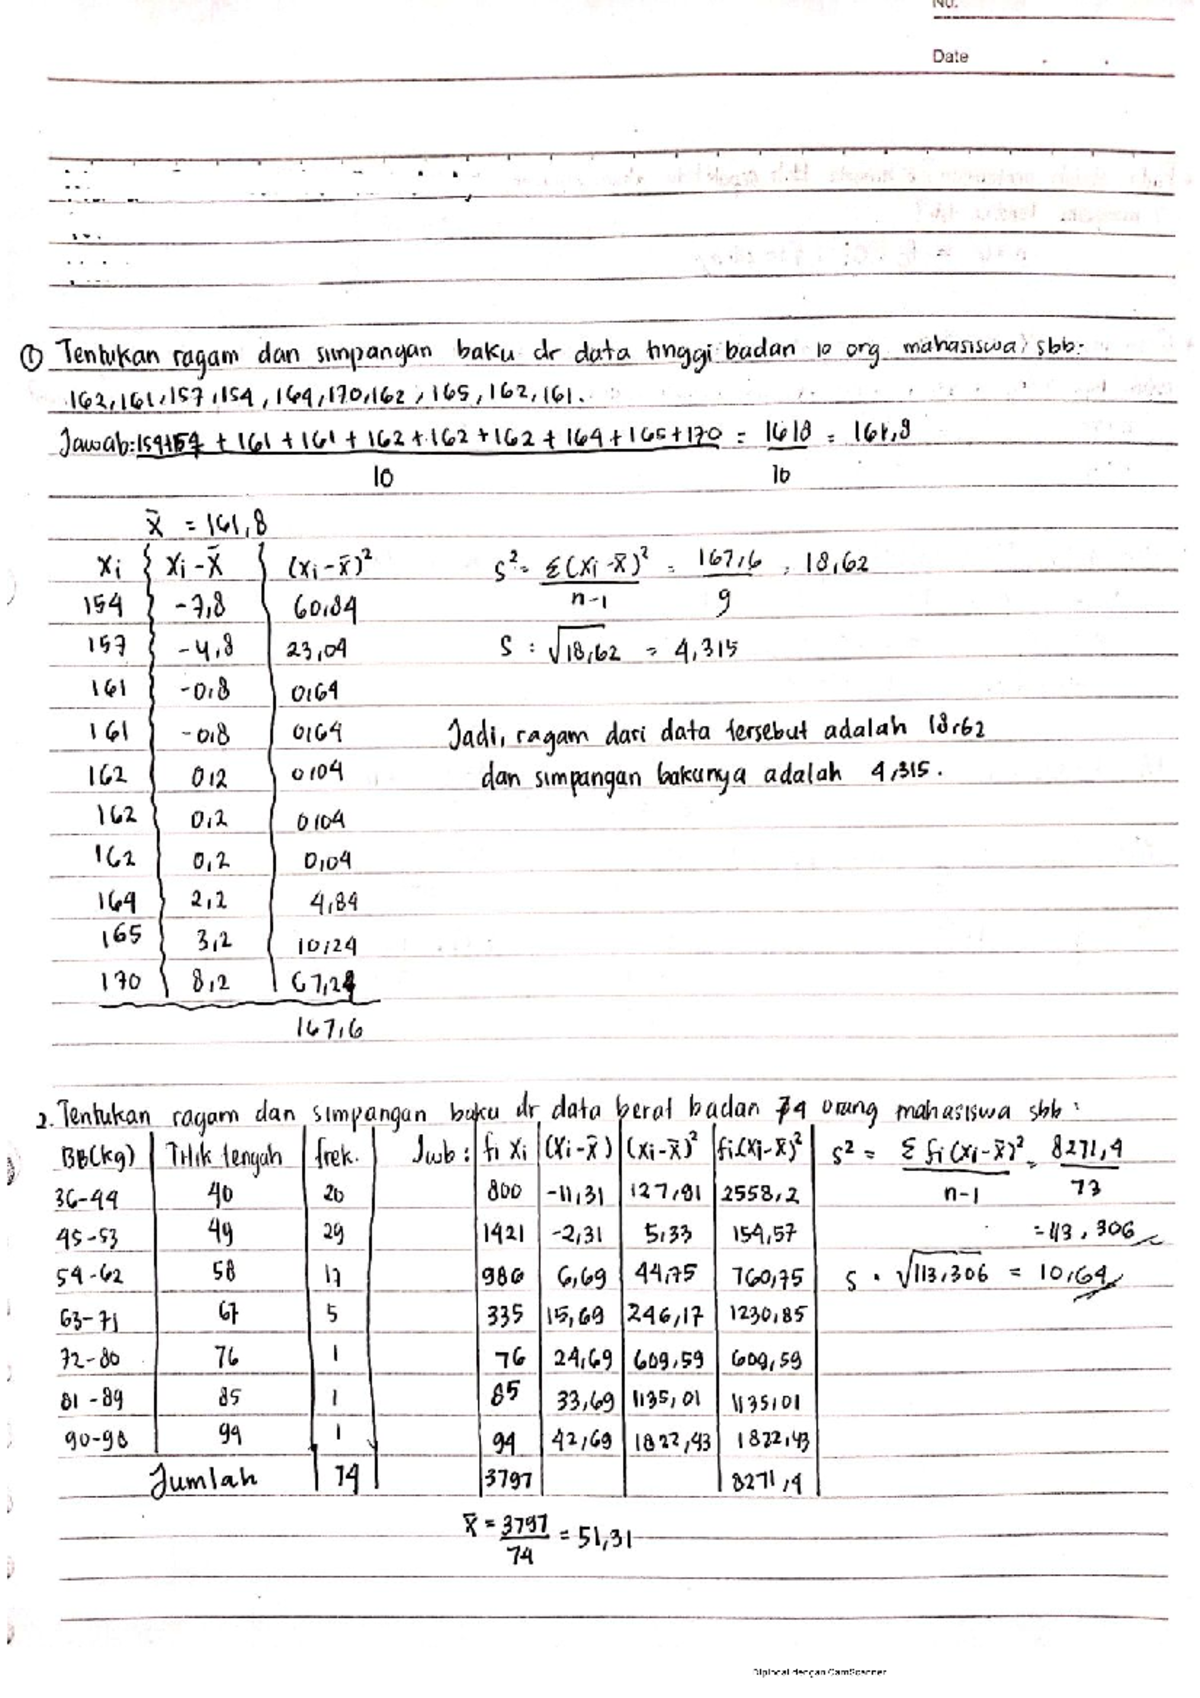 No.
Date
① Tentukan ragam dan simpangan baku dr data tinggi badan 10 org mahasiswa, sbb:
162, 161, 157, 154, 164, 170, 162, 165, 162, 161.
Jawab: 154+157 + 161 + 161 + 162 + 162 + 162 + 164 + 165 + 170 = 1618 = 161,8
10 10
x̄ = 161,8
xi xi - x̄ (xi - x̄)² s² = Σ(xi - x̄)² = 167,6 = 18,62
154 -7,8 60,84 n-1 9
157 -4,8 23,04 S : √18,62 = 4,315
161 -0,8 0,64
161 -0,8 0,64 Jadi, ragam dari data tersebut adalah 18,62
162 0,2 0,04 dan simpangan bakunya adalah 4,315.
162 0,2 0,04
162 0,2 0,04
164 2,2 4,84
165 3,2 10,24
170 8,2 67,24
167,6
2. Tentukan ragam dan simpangan baku dr data berat badan 74 orang mahasiswa sbb :
BB(kg) Titik tengah frek. Jwb : fi xi (xi - x̄) (xi - x̄)² fi.(xi - x̄)² s² = Σ fi (xi - x̄)² = 8271,4
36-44 40 20 800 -11,31 127,91 2558,2 n-1 73
45-53 49 29 1421 -2,31 5,33 154,57 = 113,306
54-62 58 17 986 6,69 44,75 760,75 S = √113,306 = 10,64
63-71 67 5 335 15,69 246,17 1230,85
72-80 76 1 76 24,69 609,59 609,59
81-89 85 1 85 33,69 1135,01 1135,01
90-98 94 1 94 42,69 1822,43 1822,43
Jumlah 74 3797 8271,4
x̄ = 3797 = 51,31
74
Dipindai dengan CamScanner